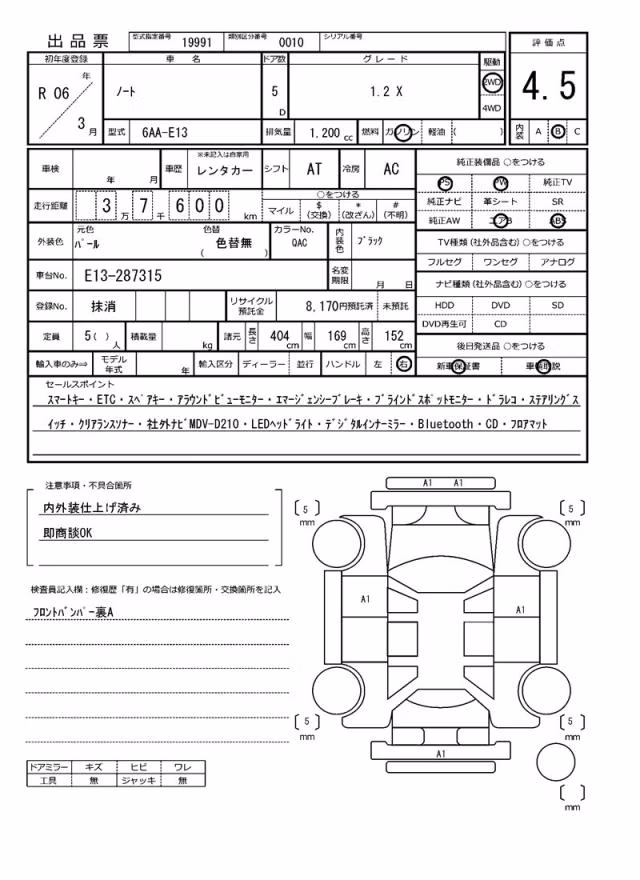 出品票 型式指定番号 19991 類別区分番号 0010 シリアル番号
初年度登録 車 名 ドア数 グレード 駆動 評価点
R 06 年 3 月 ノート 5 D 1.2 X 2WD 4WD 4.5
型式 6AA-E13 排気量 1.200 cc 燃料 ガソリン 軽油 ( ) 内装 A B C
車検 年 月 車歴 ※未記入は自家用 レンタカー シフト AT 冷房 AC 純正装備品 ○をつける
PS PW 純正TV
走行距離 3 万 7 千 6 0 0 km ○をつける 純正ナビ 革シート SR
マイル $ (交換) * (改ざん) # (不明) 純正AW エアB ABS
外装色 元色 パール 色替 色替無 ( ) カラーNo. QAC 内装色 ブラック TV種類 (社外品含む) ○をつける
フルセグ ワンセグ アナログ
車台No. E13-287315 名変期限 月 日 ナビ種類 (社外品含む) ○をつける
登録No. 抹消 リサイクル預託金 8,170円預託済 未預託 HDD DVD SD
DVD再生可 CD
定員 5 ( ) 人 積載量 kg 諸元 長さ 404 cm 幅 169 cm 高さ 152 cm
後日発送品 ○をつける
輸入車のみ⇒ モデル年式 年 輸入区分 ディーラー 並行 ハンドル 左 右 新車保証書 車輌取説
セールスポイント
スマートキー・ETC・スペアキー・アラウンドビューモニター・エマージェンシーブレーキ・ブラインドスポットモニター・ドラレコ・ステアリングス
イッチ・クリアランスソナー・社外ナビMDV-D210・LEDヘッドライト・デジタルインナーミラー・Bluetooth・CD・フロアマット
注意事項・不具合箇所
内外装仕上げ済み
即商談OK
検査員記入欄:修復歴「有」の場合は修復箇所・交換箇所を記入
フロントバンパー裏A
A1 A1
〔5〕mm 〔5〕mm
A1 A1
〔5〕mm 〔5〕mm
A1
〔 〕mm
ドアミラー キズ ヒビ ワレ
工具 無 ジャッキ 無